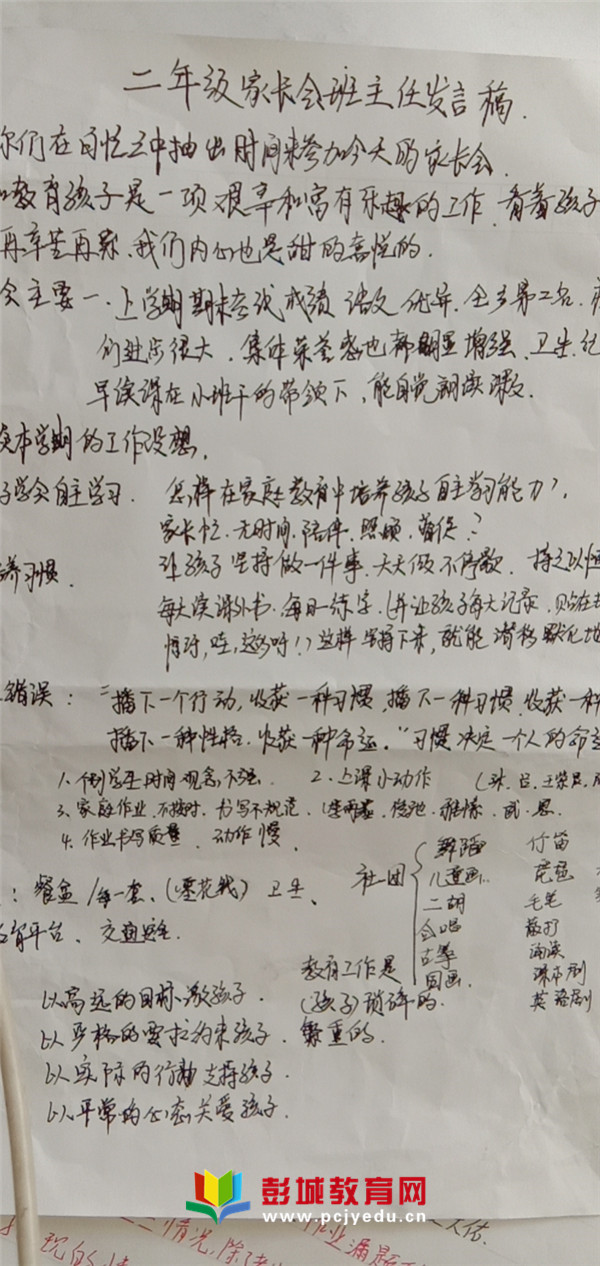 二年级家长会班主任发言稿.
你们在百忙之中抽出时间来参加今天的家长会.
教育孩子是一项艰辛和富有乐趣的工作.看着孩子
再辛苦再累、我们内心也是甜的喜悦的.
主要一.上学期期末考试成绩 语文优异.全乡第二名.
们进步很大.集体荣誉感也都明显增强、卫生、纪
早读课在小班干的带领下,能自觉朗读课文.
本学期的工作设想.
学会自主学习. 怎样在家庭教育中培养孩子自主学习能力?
家长忙.无时间.陪伴.照顾.督促?
养习惯. 让孩子坚持做一件事.天天做不停歇.持之以恒
每天读课外书.每日一练字.(并让孩子每天记录.贴在
这样坚持下来,就能潜移默化地
错误: "播下一个行动,收获一种习惯,播下一种习惯.收获一种
播下一种性格.收获一种命运."习惯决定一个人的命运
1.个别学生时间观念不强. 2.上课小动作
3、家庭作业.不按时.书写不规范.
4.作业书写质量.动作慢.
: 餐盒/每一套、 卫生、
育平台、交通安全.
社团
舞蹈 竹笛
儿童画. 琵琶
二胡 毛笔
合唱
古筝 诵读
国画. 课本剧
英语剧
教育工作是
(孩子)琐碎的.
繁重的.
以高远的目标激孩子.
以严格的要求约束孩子.
以实际的行动支持孩子.
以平常的心态关爱孩子.
彭城教育网
www.pcjyedu.cn